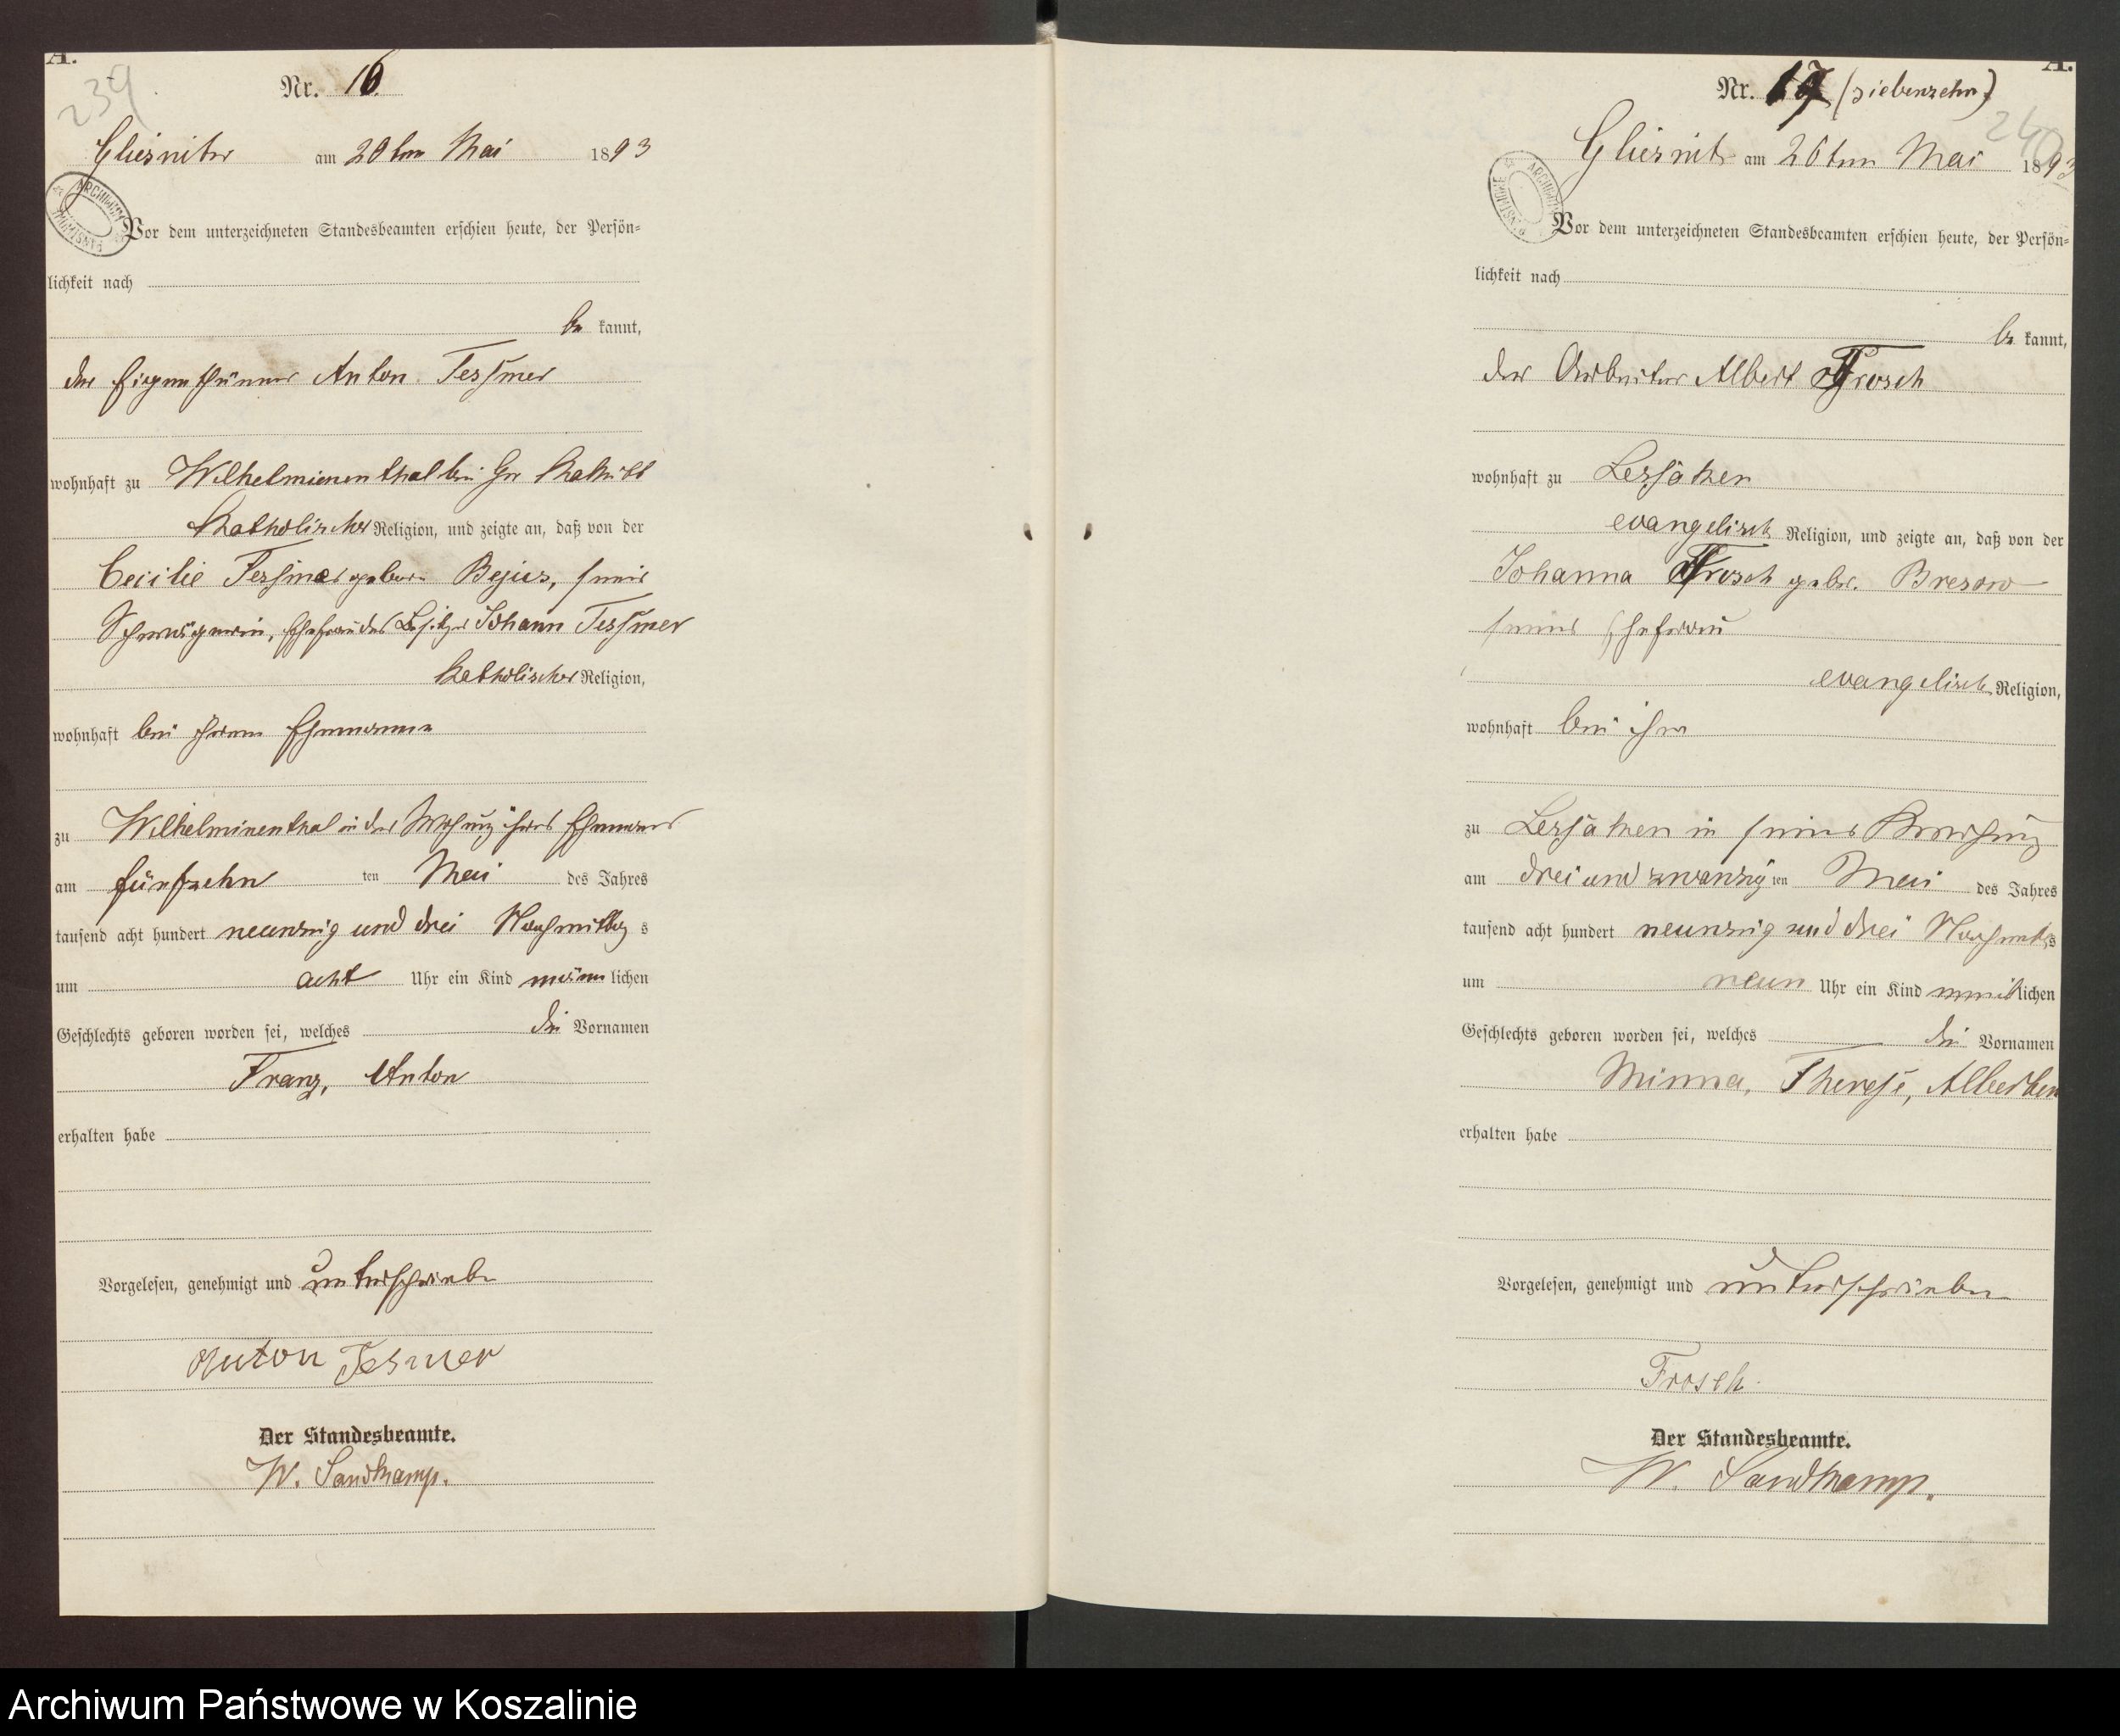 A.
239
Nr. 16.
Gliesnitz am 20ten Mai 1893
Vor dem unterzeichneten Standesbeamten erschien heute, der Persön=
lichkeit nach
be kannt,
der Eigenthümer Anton Tessmer
wohnhaft zu Wilhelmienenthal bei Gr
katholischer Religion, und zeigte an, daß von der
Cecilie Tessmer geboren seine
Schwägerin, Ehefrau des Besitzer Johann Tessmer
katholischer Religion,
wohnhaft bei ihrem Ehemanne
zu Wilhelminenthal in der Wohnung ihres Ehemannes
am fünfzehn ten Mai des Jahres
tausend acht hundert neunzig und drei Nachmittag s
um acht Uhr ein Kind männ lichen
Geschlechts geboren worden sei, welches die Vornamen
Franz, Anton
erhalten habe
Vorgelesen, genehmigt und unterschrieben
Anton Tesmer
Der Standesbeamte.
W. Sandkamp.
A.
240
Nr. 17 (siebenzehn)
Gliesnitz am 26ten Mai 1893
Vor dem unterzeichneten Standesbeamten erschien heute, der Persön=
lichkeit nach
be kannt,
der Arbeiter Albert Frosch
wohnhaft zu Lessaken
evangelisch Religion, und zeigte an, daß von der
Johanna Frosch gebor. Bresow
seiner Ehefrau
evangelisch Religion,
wohnhaft bei ihm
zu Lessaken in seiner Behausung
am drei und zwanzig ten Mai des Jahres
tausend acht hundert neunzig und drei Nachmitt s
um neun Uhr ein Kind weib lichen
Geschlechts geboren worden sei, welches die Vornamen
Minna, Therese,
erhalten habe
Vorgelesen, genehmigt und unterschrieben
Frosch.
Der Standesbeamte.
W. Sandkamp.
Archiwum Państwowe w Koszalinie